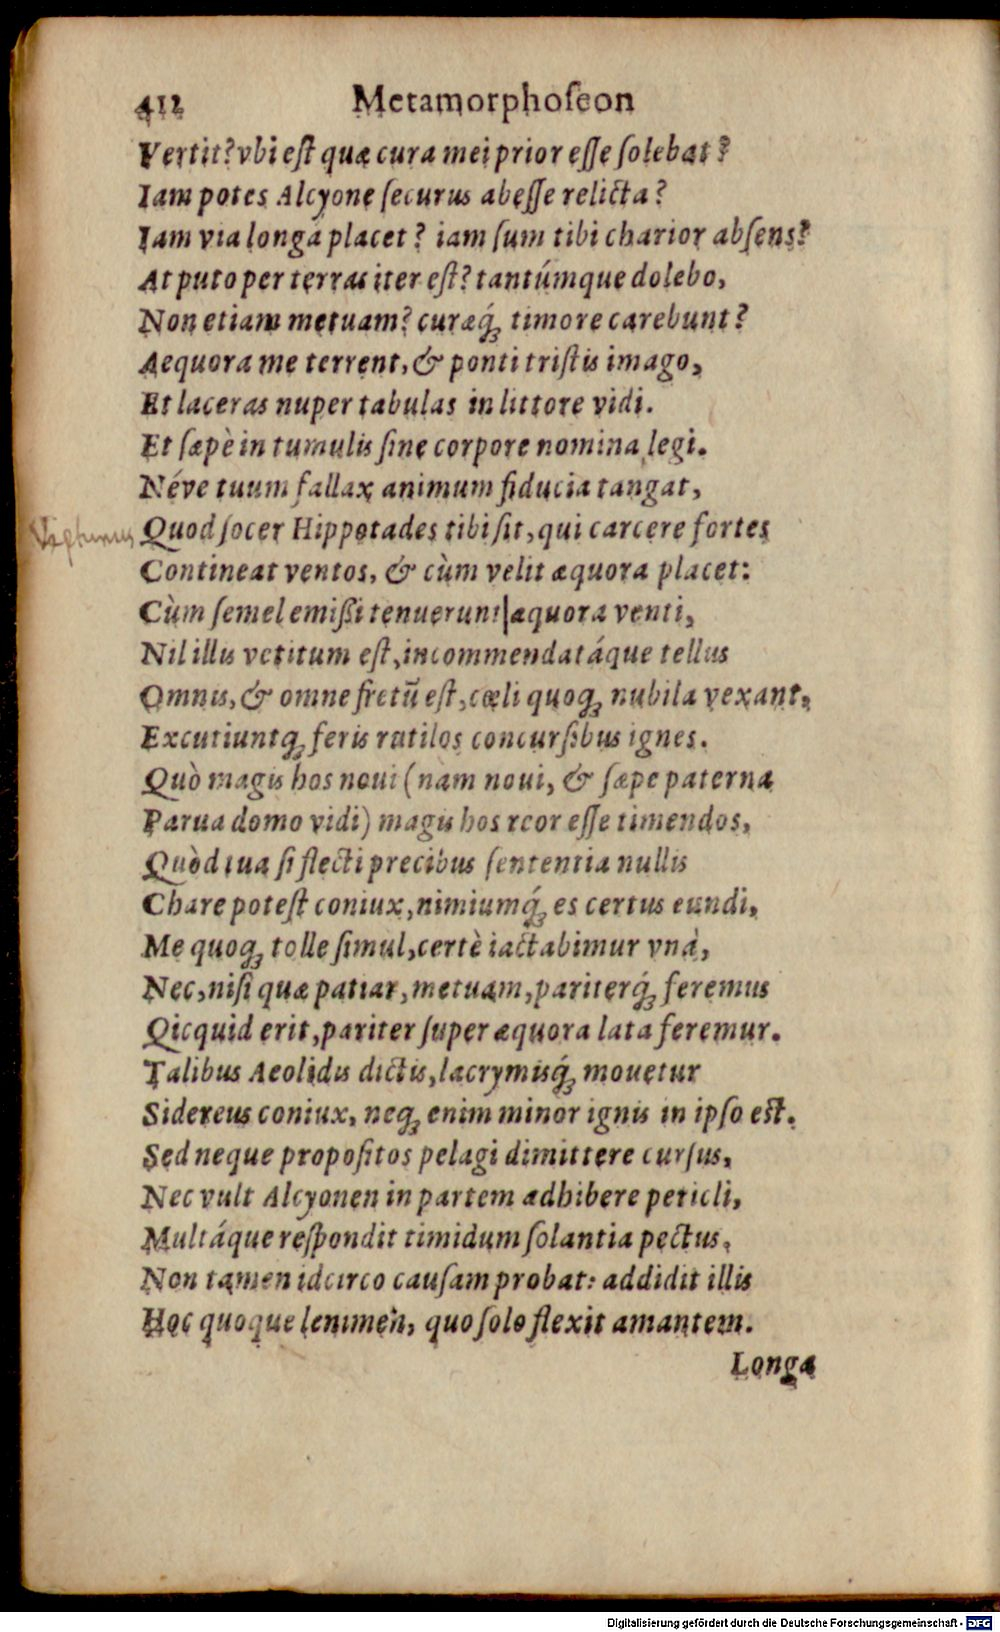 412 Metamorphoſeon
Vertit? vbi eſt quæ cura mei prior eſſe ſolebat?
Iam potes Alcyone ſecurus abeſſe relicta?
Iam via longa placet? iam ſum tibi charior abſens?
At puto per terras iter eſt? tantúmque dolebo,
Non etiam metuam? curæq́; timore carebunt?
Aequora me terrent, & ponti triſtis imago,
Et laceras nuper tabulas in littore vidi.
Et ſæpè in tumulis ſine corpore nomina legi.
Néve tuum fallax animum fiducia tangat,
Neptunus
Quod ſocer Hippotades tibi ſit, qui carcere fortes
Contineat ventos, & cùm velit æquora placet:
Cùm ſemel emißi tenuerunt|æquora venti,
Nil illis vetitum eſt, incommendatáque tellus
Omnis, & omne fretũ eſt, cœli quoq; nubila vexant,
Excutiuntq; feris rutilos concurſibus ignes.
Quò magis hos noui (nam noui, & ſæpe paterna
Parua domo vidi) magis hos reor eſſe timendos,
Quòd tua ſi flecti precibus ſententia nullis
Chare poteſt coniux, nimiumq́; es certus eundi,
Me quoq; tolle ſimul, certè iactabimur vnà,
Nec, niſi quæ patiar, metuam, pariterq́; feremus
Qicquid erit, pariter ſuper æquora lata feremur.
Talibus Aeolidis dictis, lacrymisq́; mouetur
Sidereus coniux, neq; enim minor ignis in ipſo eſt.
Sed neque propoſitos pelagi dimittere curſus,
Nec vult Alcyonen in partem adhibere peticli,
Multáque reſpondit timidum ſolantia pectus,
Non tamen idcirco cauſam probat: addidit illis
Hoc quoque lenimen, quo ſolo flexit amantem.
Longa
Digitalisierung gefördert durch die Deutsche Forschungsgemeinschaft - DFG